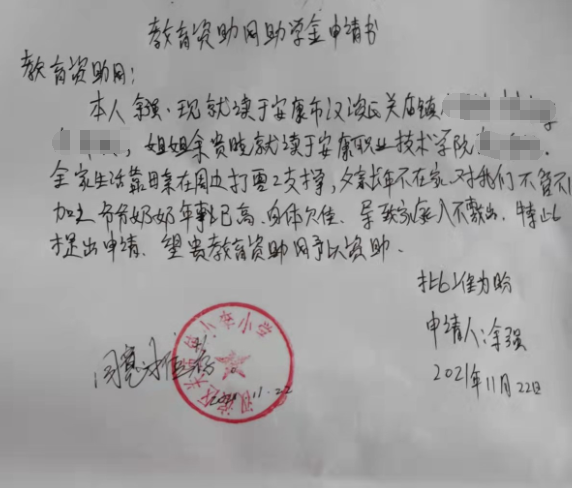 教育资助网助学金申请书
教育资助网：
本人余强、现就读于安康市汉滨区关庙镇
，姐姐余贵晓就读于安康职业技术学院
全家生活靠母亲在周边打零工支撑，父亲长年不在家、对我们不管不
加上爷爷奶奶年事已高、身体欠佳、导致家庭入不敷出、特此
提出申请、望贵教育资助网予以资助.
批准为盼
申请人:余强
2021年11月22日
小学
2021.11.22